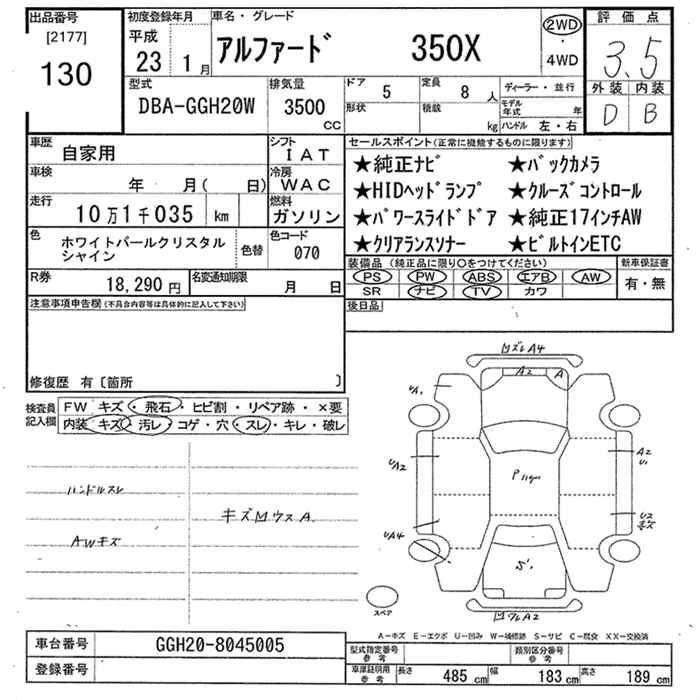 出品番号 初度登録年月 車名・グレード 評価点
[2177] 平成 2WD
130 23 1月 アルファード 350X ・ 3.5
4WD
型式 排気量 ドア 5 定員 8人 ディーラー・並行 外装 内装
DBA-GGH20W 3500 cc 形状 積載 kg モデル年式 年 D B
ハンドル 左・右
車歴 自家用 シフト IAT セールスポイント(正常に機能するものに限ります)
車検 年 月( 日) 冷房 WAC ★純正ナビ ★バックカメラ
走行 10万1千035 km 燃料 ガソリン ★HIDヘッドランプ ★クルーズコントロール
★パワースライドドア ★純正17インチAW
色 ホワイトパールクリスタルシャイン 色替 色コード 070 ★クリアランスソナー ★ビルトインETC
装備品(純正品に限り○をつけてください) 新車保証書
R券 18,290円 名変通知期限 月 日 PS PW ABS エアB AW 有・無
SR ナビ TV カワ
注意事項申告欄(不具合内容等は具体的に記入して下さい) 後日品
修復歴 有〔箇所 〕
検査員記入欄 FW キズ・飛石・ヒビ割・リペア跡・×要
内装 キズ・汚レ・コゲ・穴・スレ・キレ・破レ
ハンドルスレ
キズMウスA
AWキズ
MズレA4
A2 A
UA1
UA2
A2
U1
P
U2
キズ
UA4
S1
スペア
MワレA2
A－キズ E－エクボ U－凹み W－補修跡 S－サビ C－腐食 XX－交換済
車台番号 GGH20-8045005 型式指定番号 参考 類別区分番号 参考
登録番号 車庫証明用 参考 長さ 485cm 幅 183cm 高さ 189cm